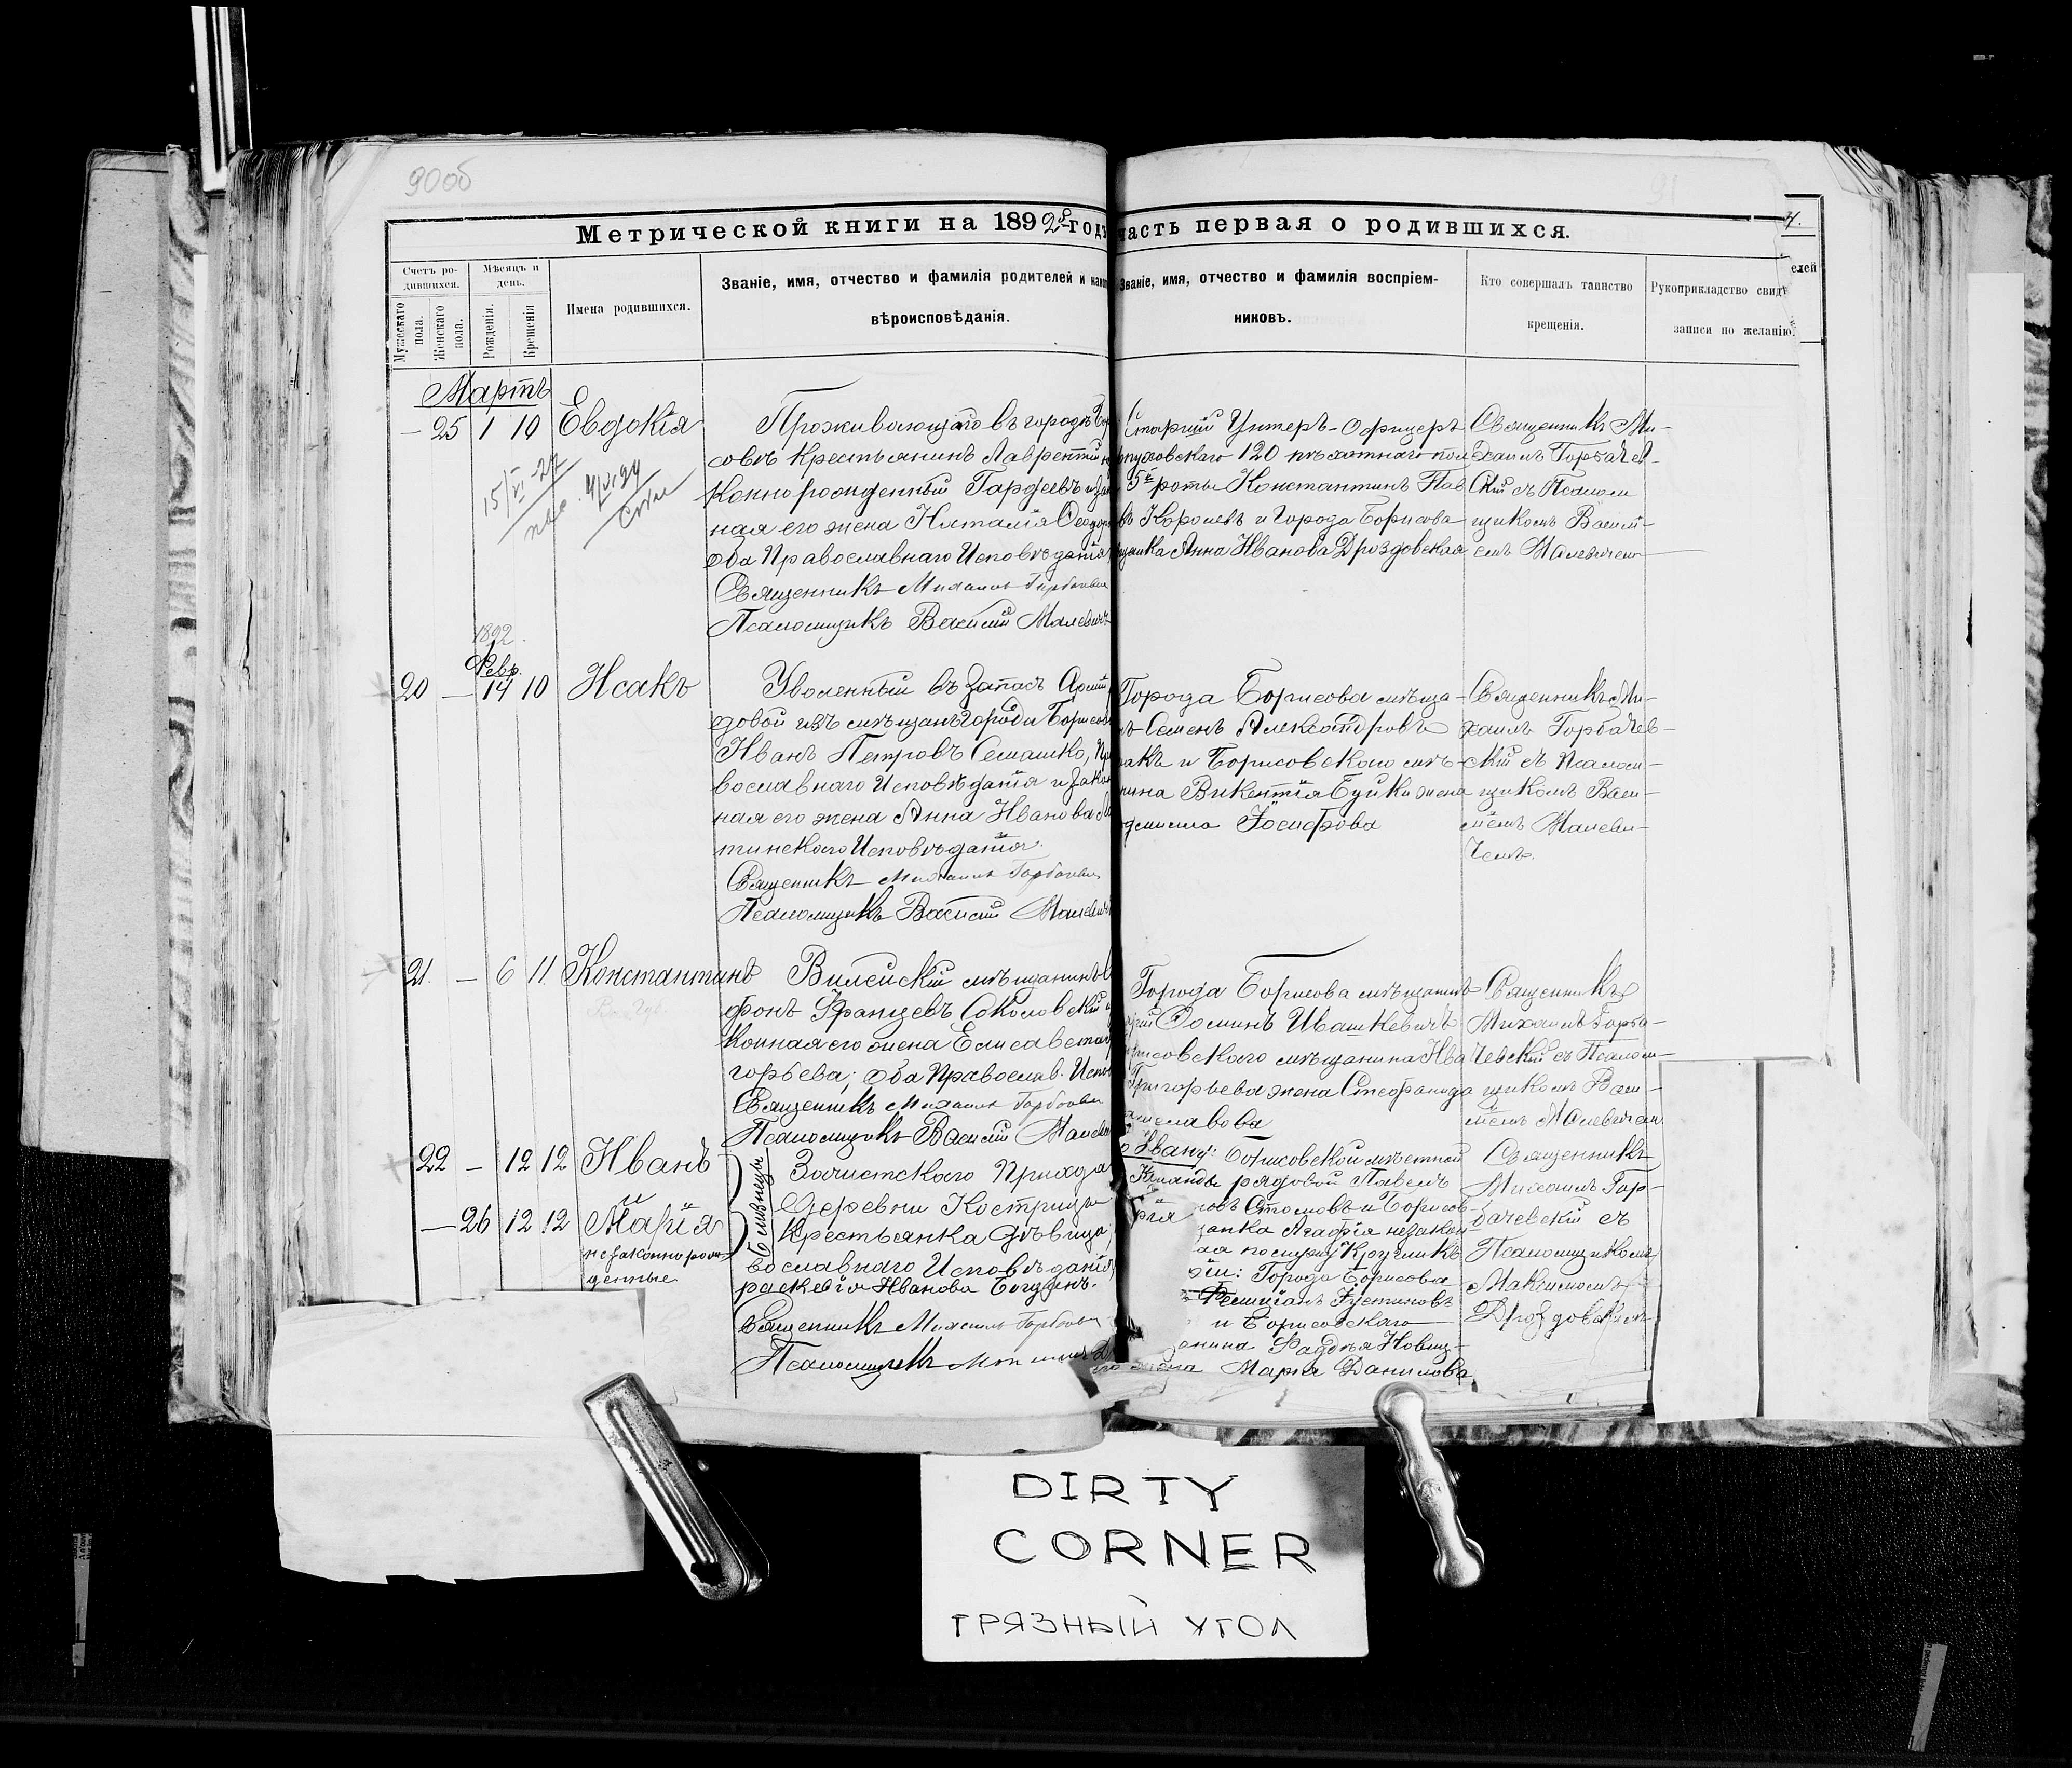 90об
91
Метрической книги на 1892й годъ часть первая о родившихся.
4.
Счетъ ро-
дившихся.
Мужескаго пола.
Женскаго пола.
Мѣсяцъ и день.
Рожденія.
Крещенія
Имена родившихся.
Званіе, имя, отчество и фамилія родителей и
вѣроисповѣданія.
Званіе, имя, отчество и фамилія воспріем-
никовъ.
Кто совершалъ таинство
крещенія.
Рукоприкладство свидѣ
елей
записи по желанію.
Мартъ
— 25 1 10 Евдокія
Проживающаго въ городѣ Бор
совѣ крестьянинъ Лаврентій
коннорожденный Гардѣевъ и
ная его жена Наталія Ѳеодор
оба Православнаго Исповѣданія
Священникъ Михаилъ Горбачевск
Псаломщикъ Василій Малевичъ
Старшій Унтеръ-Офицеръ
пуховскаго 120 пѣхотнаго пол
5й роты Константинъ Пав
въ Королевъ и Города Борисова
щанка Анна Иванова Дроздовская
Священникъ Ми-
хаилъ Горбачев-
скій съ Псалом
щикомъ Васил-
емъ Малевичем
1892.
Февр.
20 — 14 10 Исакъ
Уволенный въ запасъ Арміи
довой изъ мѣщанъ города Борисов
Иванъ Петровъ Семашко, Пр
вославнаго Исповѣданія и закон
ная его жена Анна Иванова
тинскаго Исповѣданія.
Священникъ Михаилъ Горбачевск
Псаломщикъ Василій Малевичъ
Города Борисова мѣща-
нъ Семенъ Александровъ
акъ и Борисовскаго мѣ-
нина Викентія Буйки жена
Іосифова
Священникъ Ми-
хаилъ Горбачев-
скій съ Псалом-
щикомъ Васи-
ліемъ Малеви-
чемъ.
21. — 6 11 Константинъ
Вилейскій мѣщанинъ
фонъ Францевъ Соколовскій
конная его жена Елисавета
горьева; оба Православ. Испов
Священникъ Михаилъ Горбачевск
Псаломщикъ Василій Малеви
Города Борисова мѣщанинъ
рій Ѳоминъ Ивашкевичъ
рисовскаго мѣщанина Ива
Григорьева жена Стефанида
славова
Священникъ
Михаилъ Горба-
чевскій съ Псалом-
щикомъ Васи-
ліемъ Малевичем
22 — 12 12 Иванъ
и
— 26 12 12 Марія
незаконнорож-
денные
близнецы
Зачистскаго Прихода
Деревни Кострицы
Крестьянка дѣвица,
вославнаго Исповѣданія
раскевія Иванова Богданъ.
Священникъ Михаилъ Горбачевск
Псаломщикъ
Ивану: Борисовской мѣстной
Команды рядовой Павелъ
новъ и Борисов
щанка Агафія незакон
Кругликъ
ріи: Города Борисова
Фелиціанъ Устиновъ
и Борисовскаго
анина Фаддея Новиц-
его жена Марія Данилова
Священникъ
Михаилъ Гор-
бачевскій съ
Псаломщикомъ
Максимомъ
Дроздовскимъ
DIRTY
CORNER
ГРЯЗНЫЙ УГОЛ